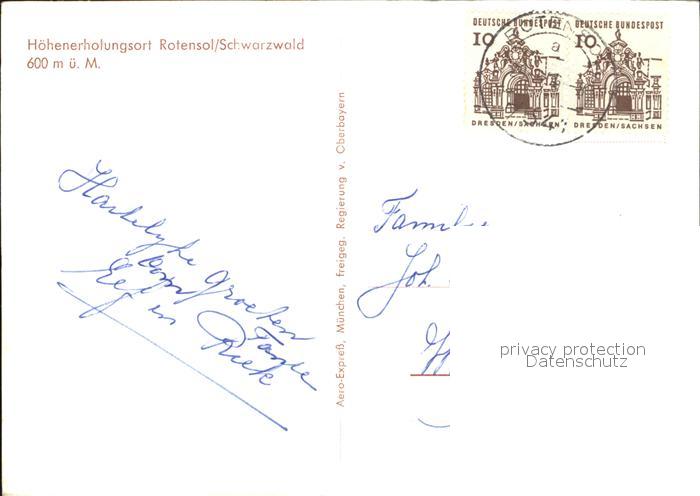 Höhenerholungsort Rotensol/Schwarzwald
600 m ü. M.
DEUTSCHE BUNDESPOST
10
DRESDEN/SACHSEN
DEUTSCHE BUNDESPOST
10
DRESDEN/SACHSEN
a
Aero-Expreß, München, freigeg. Regierung v. Oberbayern
Hartelyke groeten
van Tante
en Riek
Famil
Joh.
privacy protection
Datenschutz